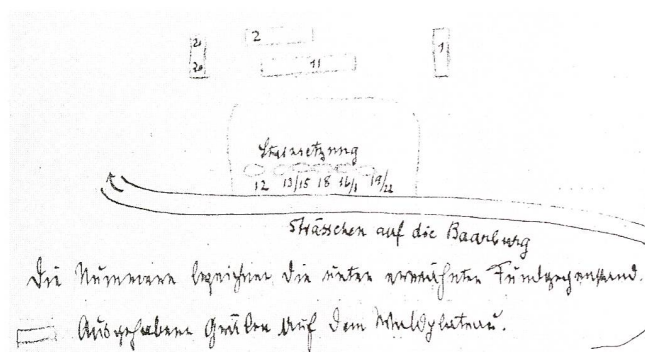 2 20 11 1
20
Steinsetzung
12 13/15 18 16/1 19/22
Strässchen auf die Baarburg
Die Nummern bezeichnen die unten erwähnten Fundgegenständ.
Ausgehobene Gräben auf dem Waldplateau.